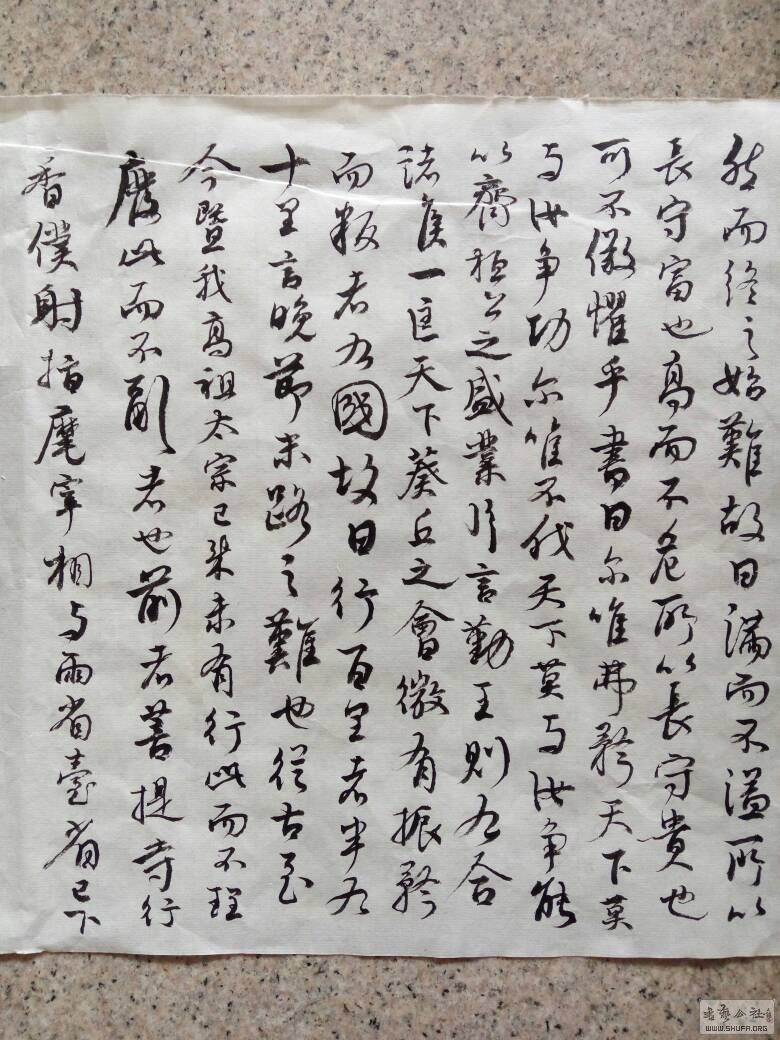 然而終之始難故曰滿而不溢所以
長守富也高而不危所以長守貴也
可不儆懼乎書曰尔唯弗矜天下莫
与汝争功尔唯不伐天下莫与汝争能
以齊桓公之盛業片言勤王則九合
諸侯一匡天下葵丘之會微有振矜
而叛者九國故曰行百里者半九
十里言晚節末路之難也從古至
今暨我高祖太宗已来未有行此而不理
廢此而不亂者也前者菩提寺行
香僕射指麾宰相与兩省臺省已下
書藝公社
WWW.SHUFA.ORG